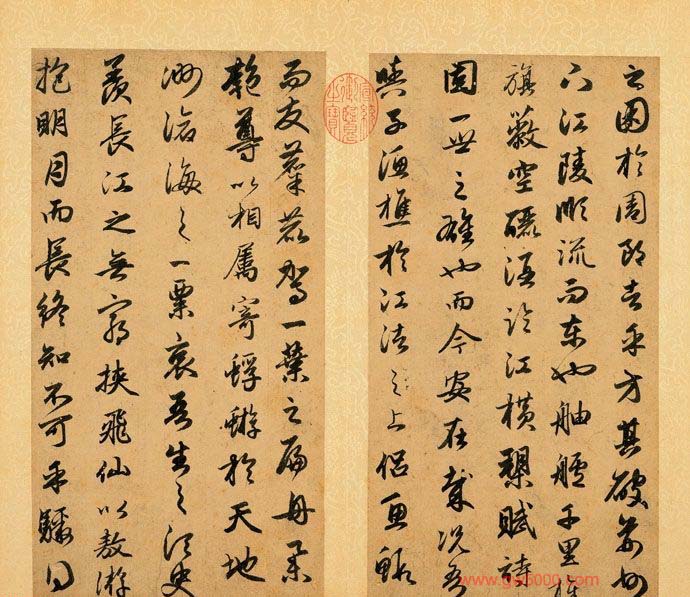 之困於周郎者乎方其破荊州
下江陵順流而東也舳艫千里旌
旗蔽空釃酒臨江橫槊賦詩
固一世之雄也而今安在哉況吾
與子漁樵於江渚之上侶魚蝦
而友麋鹿駕一葉之扁舟舉
匏尊以相屬寄蜉蝣於天地
渺滄海之一粟哀吾生之須臾
羨長江之無窮挾飛仙以遨遊
抱明月而長終知不可乎驟得
宣統御覽之寶